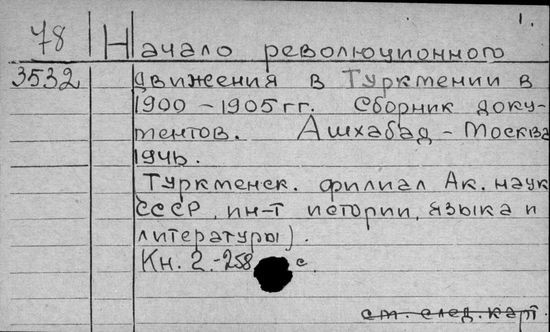 1.
78 Начало революционного
3532 движения в Туркмении в
1900-1905 гг. Сборник доку-
ментов. Ашхабад - Москва
1946.
Туркменск. филиал Ак. наук
СССР, ин-т истории, языка и
литературы).
Кн. 2.-258 с.
см. след. карт.